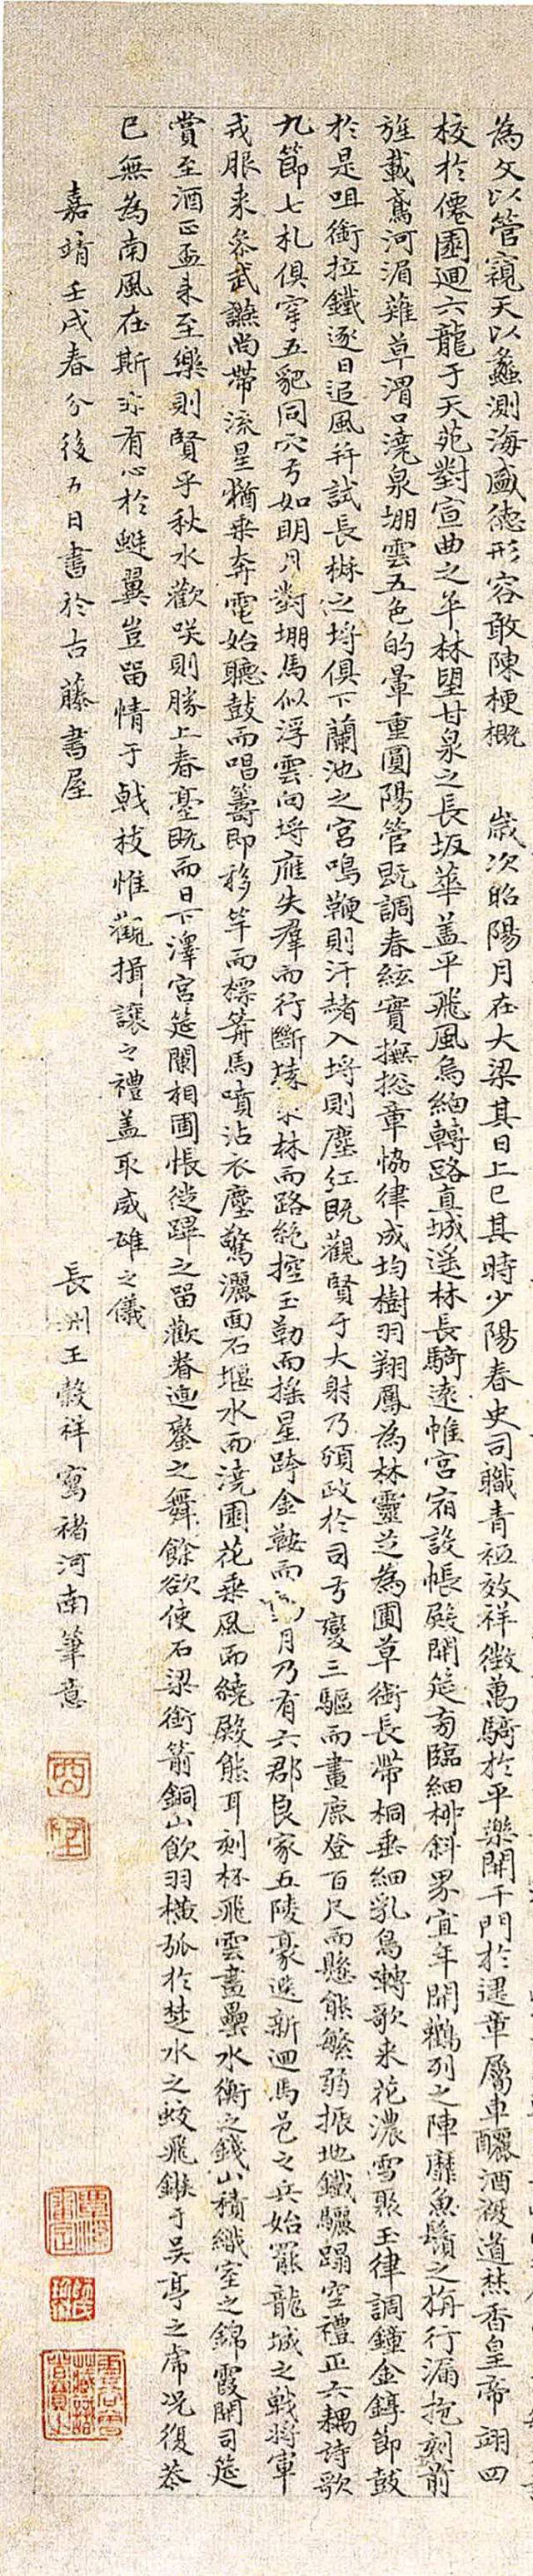 為文以管窺天以蠡測海盛德形容敢陳梗概 歲次昭陽月在大梁其日上巳其時少陽春史司職青祗效祥徵萬騎於平樂開千門於建章屬車釃酒複道焚香皇帝翊四
校於僊園迴六龍于天苑對宣曲之平林望甘泉之長坂華盖平飛風烏細轉路直城遥林長騎遠帷宮宿設帳殿開筵旁臨細柳斜界宜年開鸛列之陣靡魚鬚之旃行漏抱刻前
旌載鳶河湄雉草渭口澆泉堋雲五色的暈重圓陽管既調春絃實撫捴章恊律成均樹羽翔鳳為林靈芝為圃草衘長帶桐垂細乳鳥囀歌来花濃雪聚玉律調鐘金錞節鼓
於是咀銜拉鐵逐日追風并試長楸之埒俱下蘭池之宮鳴鞭則汗赭入埒則塵紅既觀賢于大射乃頒政於司弓變三驅而畫鹿登百尺而懸熊繁弱振地鐵驪蹋空禮正六耦詩歌
九節七札俱穿五豝同穴弓如明月對堋馬似浮雲向埒鴈失羣而行斷猿求林而路絕控玉勒而摇星跨金鞍而月乃有六郡良家五陵豪選新迴馬邑之兵始罷龍城之戰將軍
戎服来參武讌尚帶流星猶乘奔電始聽鼓而唱籌即移竿而標筭馬噴沾衣塵驚灑面石堰水而澆園花乘風而繞殿熊耳刻杯飛雲畫罍水衡之錢山積織室之錦霞開司筵
賞至酒正盃来至樂則賢乎秋水歡咲則勝上春臺既而日下澤宮筵闌相圃悵徙蹕之留歡眷迴鑾之舞餘欲使石梁銜箭銅山飲羽橫弧於楚水之蛟飛鏃于吴亭之虎況復恭
已無為南風在斯非有心於蜓翼豈留情于戟枝惟觀揖讓之禮盖取威雄之儀
嘉靖壬戌春分後五日書於古藤書屋 長洲王榖祥寫褚河南筆意